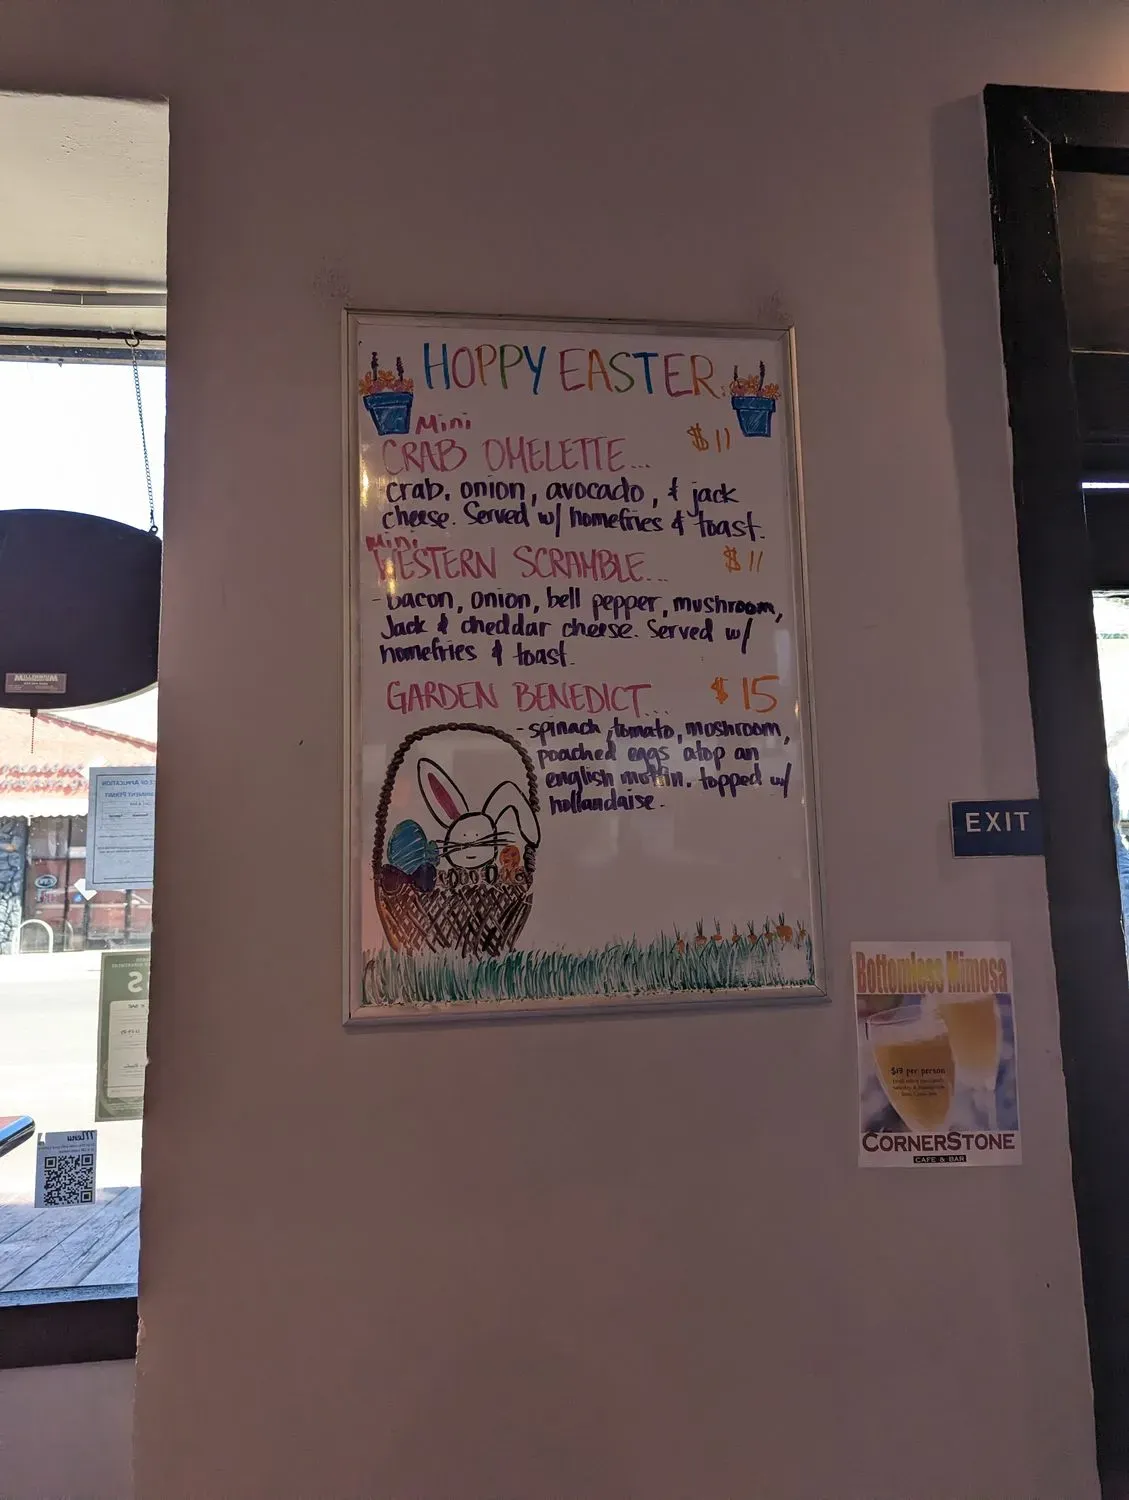 HOPPY EASTER
Mini
CRAB OMELETTE... $11
crab, onion, avocado, & jack
cheese. Served w/ homefries & toast.
Mini
WESTERN SCRAMBLE... $11
-bacon, onion, bell pepper, mushroom,
Jack & cheddar cheese. Served w/
homefries & toast.
GARDEN BENEDICT... $15
-spinach, tomato, mushroom,
poached eggs atop an
english muffin. topped w/
hollandaise.
EXIT
Bottomless Mimosa
per person
CORNERSTONE
CAFE & BAR
MILLENNIUM
Menu